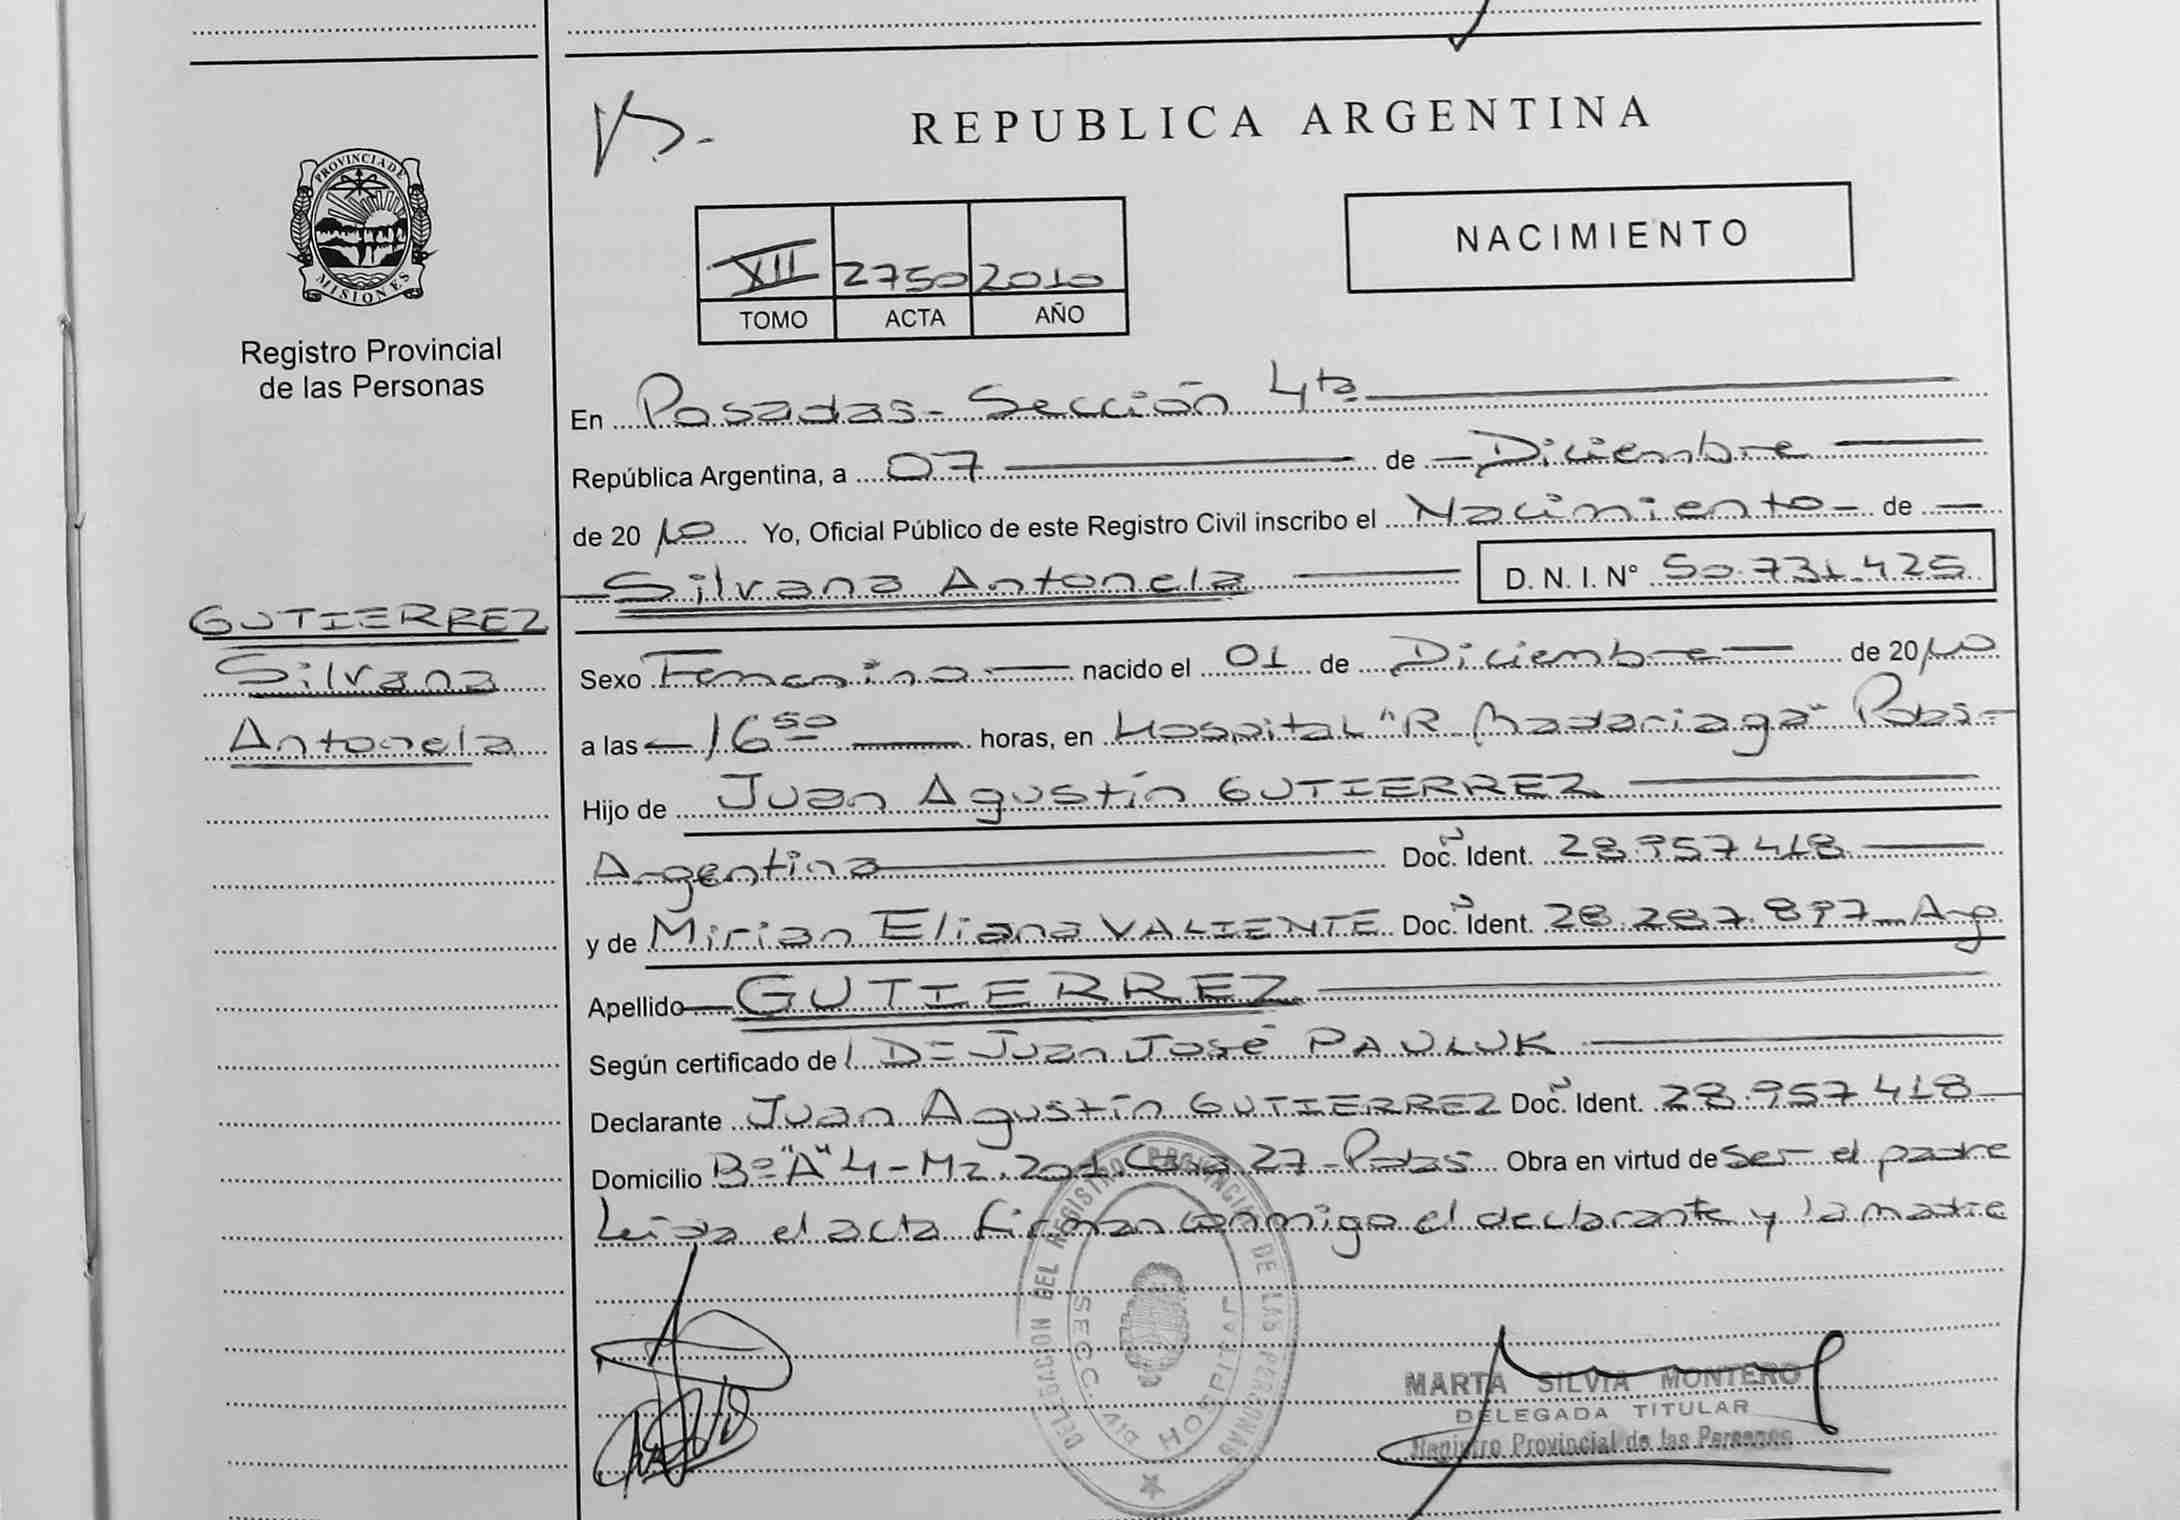 REPUBLICA ARGENTINA
PROVINCIA DE
MISIONES
Registro Provincial
de las Personas
NACIMIENTO
XII 2750 2010
TOMO ACTA AÑO
En Posadas - Sección 4ta
República Argentina, a 07 de Diciembre
de 2010 Yo, Oficial Público de este Registro Civil inscribo el Nacimiento de
Silvana Antonela D. N. I. N° 50.731.425
GUTIERREZ
Silvana
Antonela
Sexo Femenino nacido el 01 de Diciembre de 2010
a las 16 50 horas, en Hospital "R. Madariaga" Pdas
Hijo de Juan Agustín GUTIERREZ
Argentina Doc. Ident. 28.957.418
y de Mirian Eliana VALIENTE Doc. Ident. 28.287.897 Arg
Apellido GUTIERREZ
Según certificado de D= Juan José PAULUK
Declarante Juan Agustín GUTIERREZ Doc. Ident. 28.957.418
Domicilio B= "A" 4 - Mz. 201. Casa 27 - Pdas Obra en virtud de Ser el padre
Leida el acta firman conmigo el declarante y la madre
DELEGACION DEL REGISTRO PROVINCIAL DE LAS PERSONAS
SECC. DIV HOSPITAL
MARTA SILVIA MONTERO
DELEGADA TITULAR
Registro Provincial de las Personas